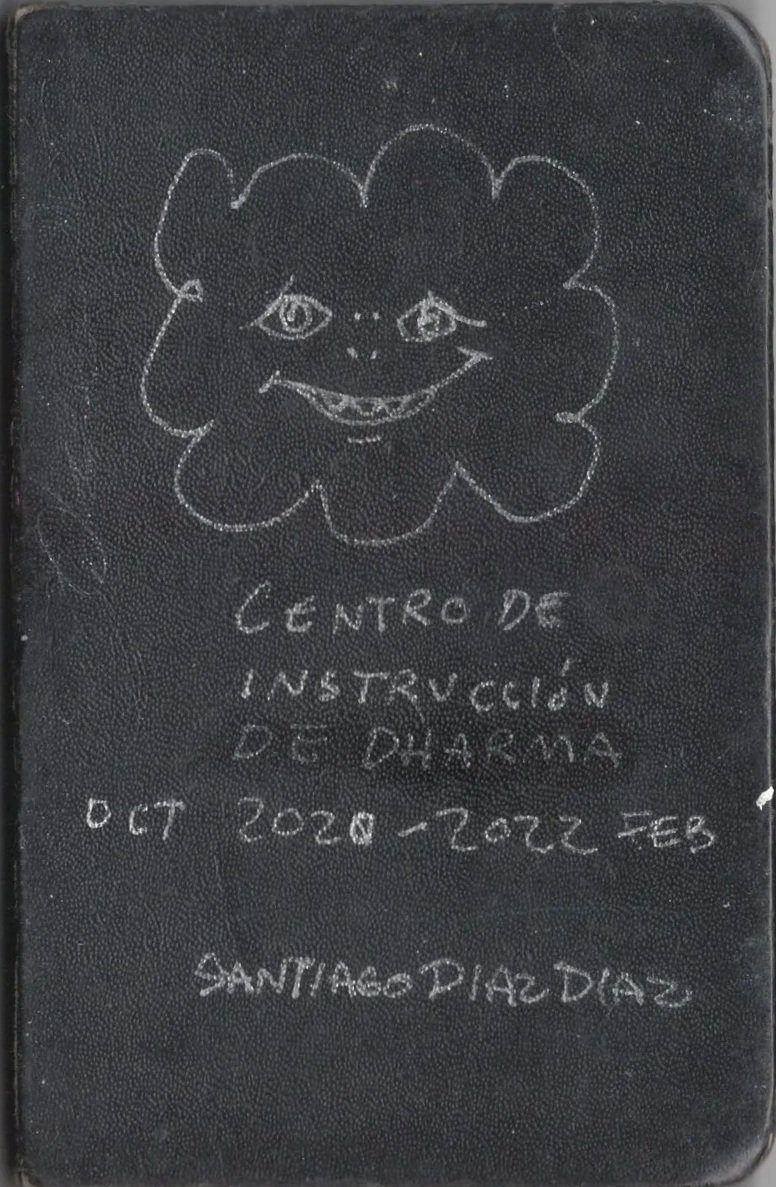 CENTRO DE
INSTRUCCIÓN
DE DHARMA
OCT 2020 - 2022 FEB
SANTIAGO DIAZ DIAZ